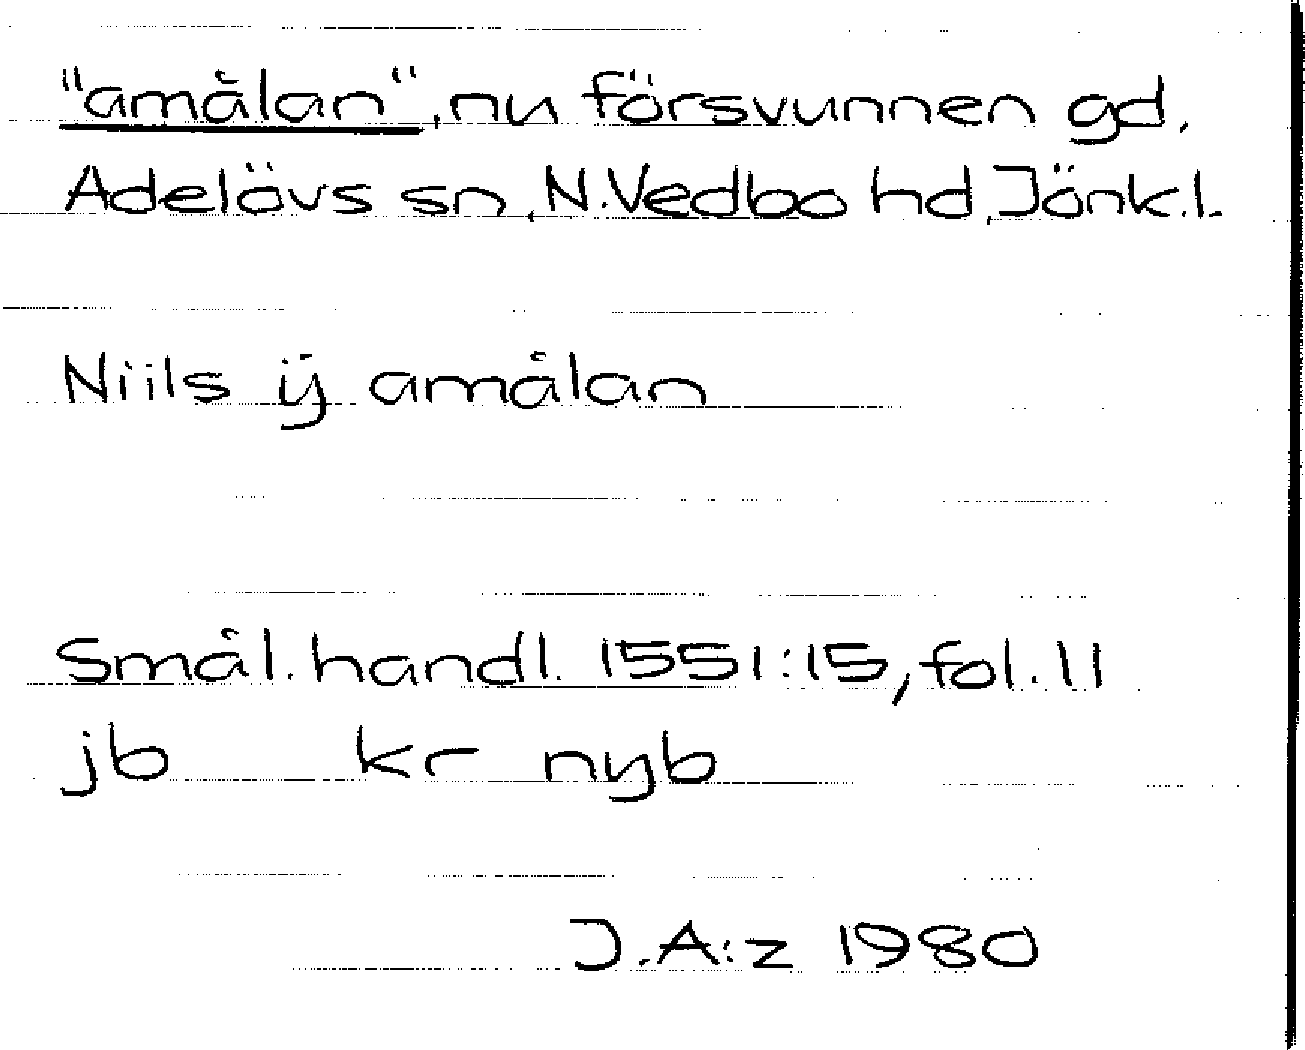 "amålan", nu försvunnen gd,
Adelövs sn, N. Vedbo hd, Jönk.l.
Niils ij amålan
Smål. handl. 1551:15, fol. 11
jb kr nyb
J.A:z 1980